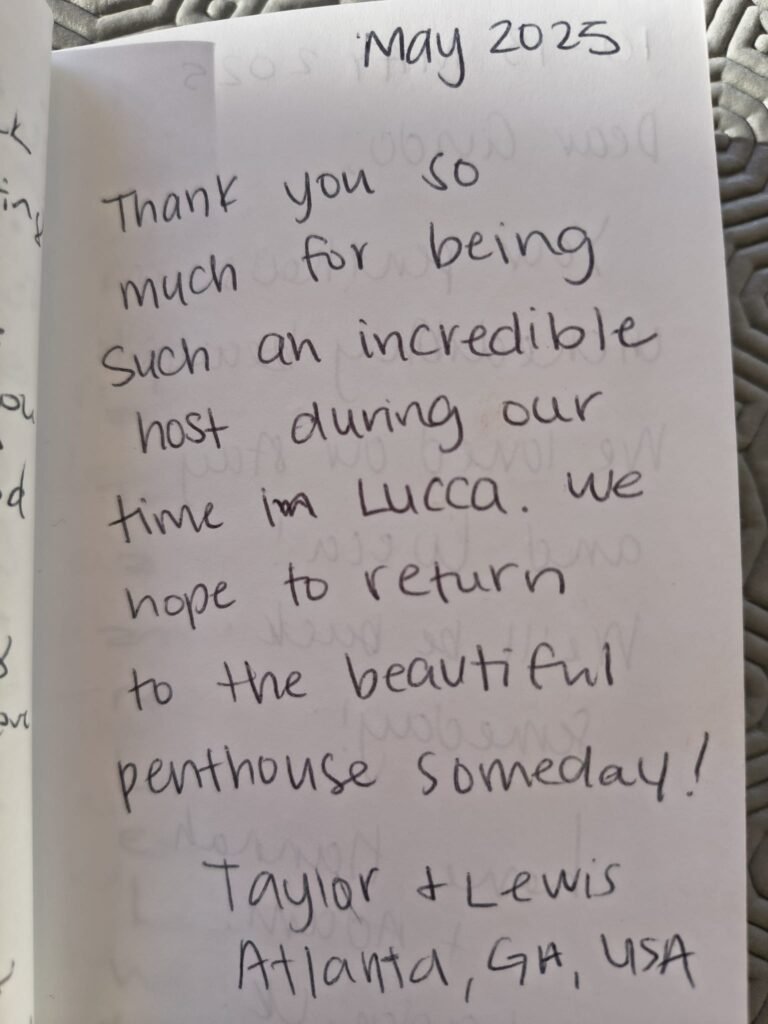 May 2025
Thank you so
much for being
such an incredible
host during our
time in Lucca. We
hope to return
to the beautiful
penthouse someday!
Taylor + Lewis
Atlanta, GA, USA